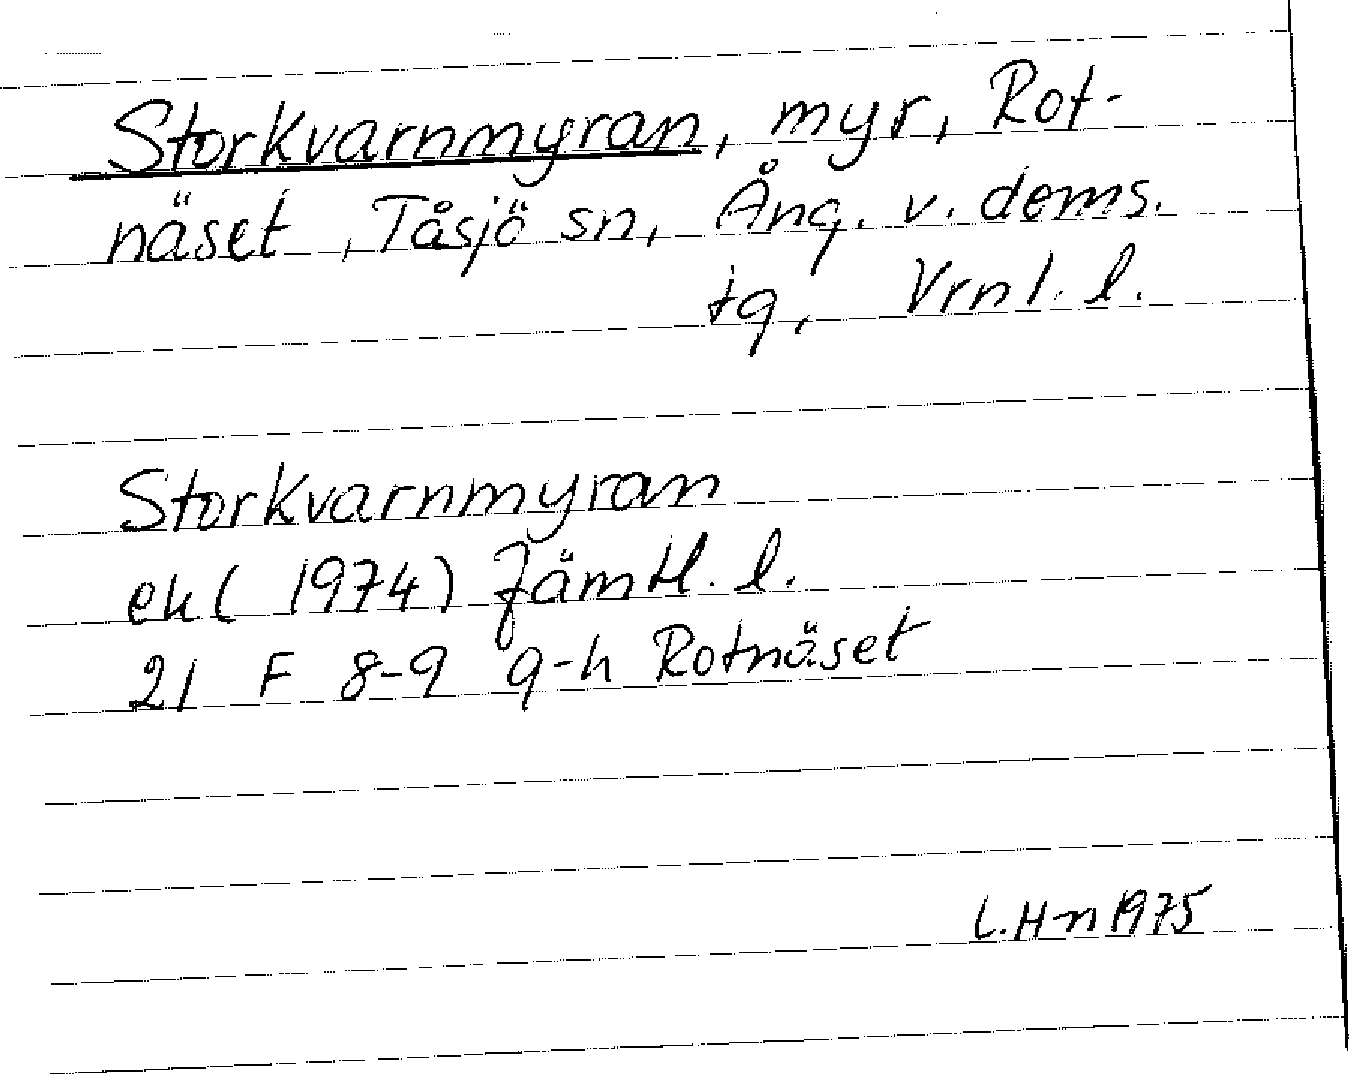 Storkvarnmyran, myr, Rot-
näset, Tåsjö sn, Ång. v. dems.
tg, Vrnl. l.
Storkvarnmyran
ek (1974) Jämtl. l.
21 F 8-9 g-h Rotnäset
L.H-n 1975